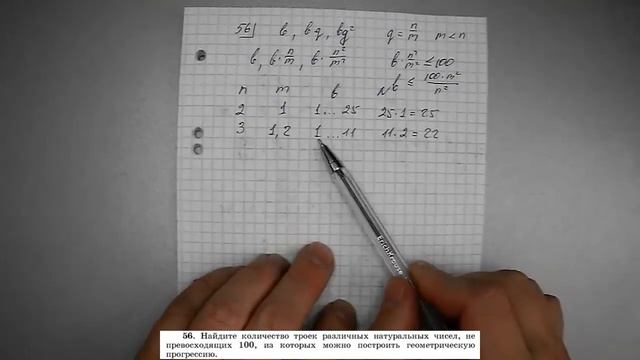 56 b, bq, bq² q = n/m m < n
b, b·n/m, b·n²/m² b·n²/m² ≤ 100
b ≤ 100·m²/n²
n m b N
2 1 1 ... 25 25·1 = 25
3 1,2 1 ... 11 11·2 = 22
ErichKrause
56. Найдите количество троек различных натуральных чисел, не
превосходящих 100, из которых можно построить геометрическую
прогрессию.